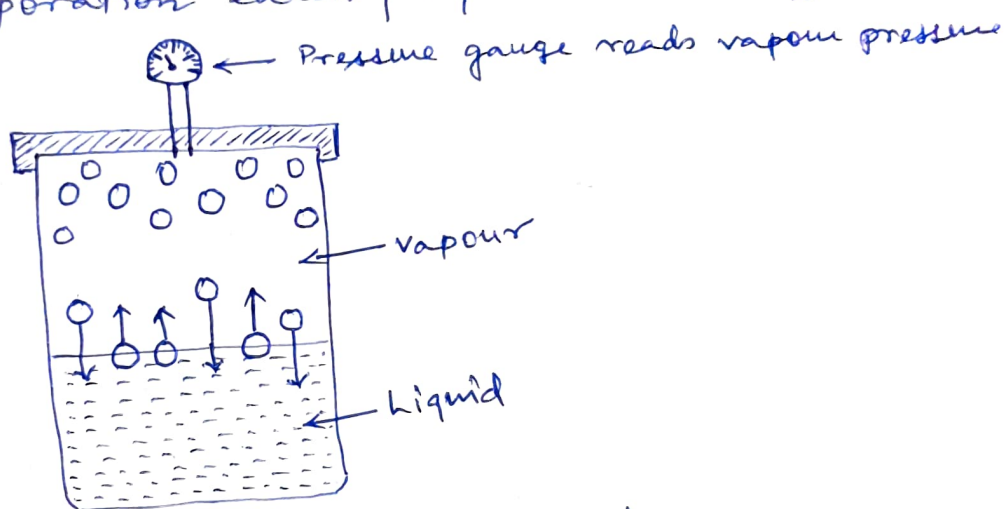 Pressure gauge reads vapour pressure
vapour
Liquid